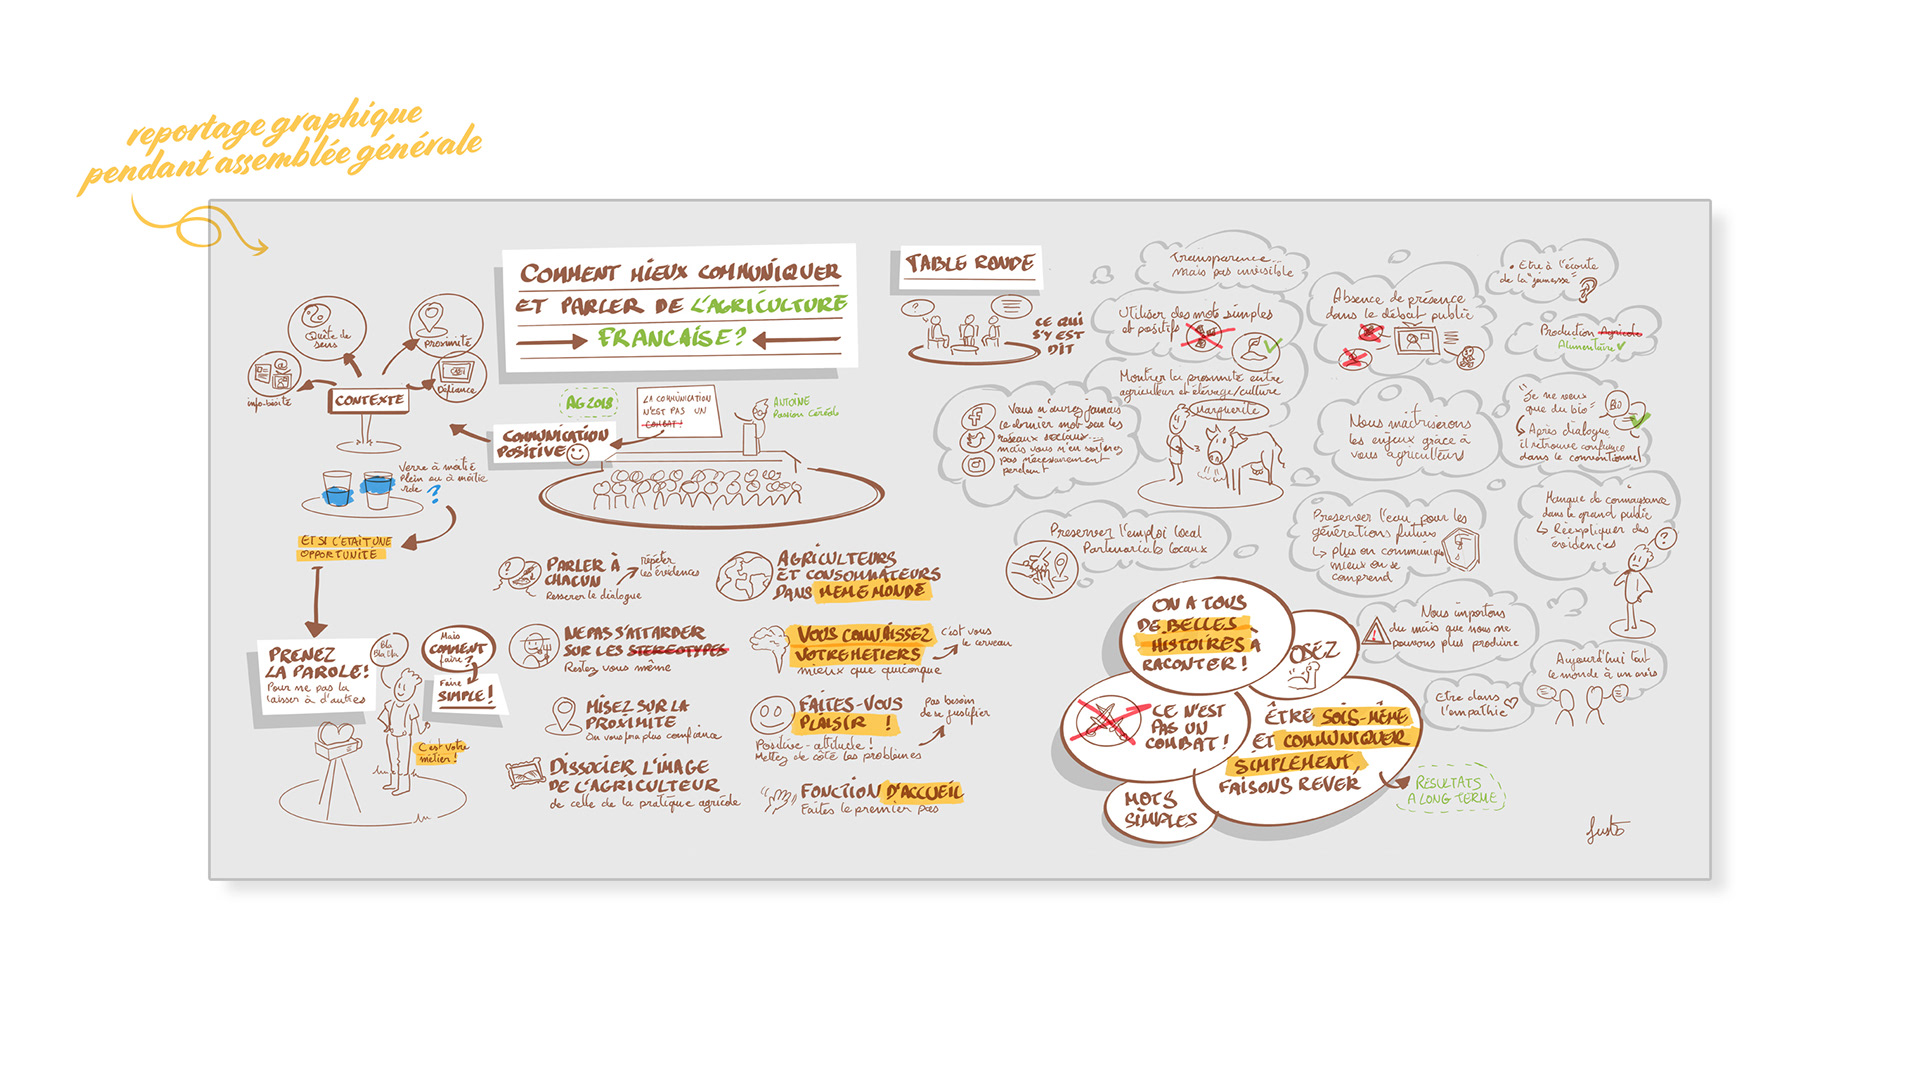 reportage graphique
pendant assemblée générale
COMMENT MIEUX COMMUNIQUER
ET PARLER DE L'AGRICULTURE
FRANCAISE?
Quête de
sens
proximité
info-bésité
Défiance
CONTEXTE
AG 2018
LA COMMUNICATION
N'EST PAS UN
COMBAT !
ANTOINE
Passion Céréales
COMMUNICATION
POSITIVE
Verre à moitié
plein ou à moitié
vide ?
ET SI C'ETAIT UNE
OPPORTUNITÉ
PRENEZ
LA PAROLE!
Pour ne pas la
laisser à d'autres
Bla
Bla bla
Mais
COMMENT
faire?
Faire
SIMPLE!
C'est votre
métier!
PARLER À
CHACUN
Resserer le dialogue
Répéter
les évidences
AGRICULTEURS
ET CONSOMMATEURS
DANS MEME MONDE
NE PAS S'ATTARDER
SUR LES STEREOTYPES
Restez vous même
VOUS CONNAISSEZ
VOTRE METIERS
mieux que quiconque
c'est vous
le cerveau
MISEZ SUR LA
PROXIMITE
On vous fera plus confiance
FAITES-VOUS
PLAISIR !
Positive-attitude!
Mettez de côté les problèmes
pas besoin
de se justifier
DISSOCIER L'IMAGE
DE L'AGRICULTEUR
de celle de la pratique agricole
FONCTION D'ACCUEIL
Faites le premier pas
TABLE RONDE
?
CE QUI
S'Y EST
DIT
Transparence
mais pas invisible
Utiliser des mots simples
et positifs
Montrer la proximité entre
agriculteur et élevage/culture
Marguerite
Vous n'aurez jamais
le dernier mot sur les
réseaux sociaux...
mais vous n'en sortirez
pas nécessairement
perdant
Preserver l'emploi local
Partenariats locaux
Absence de présence
dans le débat public
• Etre à l'écoute
de la "jeunesse"
Production Agricole
Alimentaire
Nous maitriserons
les enjeux grâce à
vous agriculteurs
"Je ne veux
que du bio"
BIO
Après dialogue
il retrouve confiance
dans le conventionnel
Preserver l'eau pour les
générations futures
plus on communique
mieux on se
comprend
Manque de connaissance
dans le grand public
Réexpliquer des
évidences
?
Nous importons
du maïs que nous ne
pouvons plus produire
Aujourd'hui tout
le monde à un avis
Etre dans
l'empathie
ON A TOUS
DE BELLES
HISTOIRES A
RACONTER !
OSEZ
CE N'EST
PAS UN
COMBAT !
ÊTRE SOIS-MÊME
ET COMMUNIQUER
SIMPLEMENT,
FAISONS REVER
MOTS
SIMPLES
RÉSULTATS
A LONG TERME